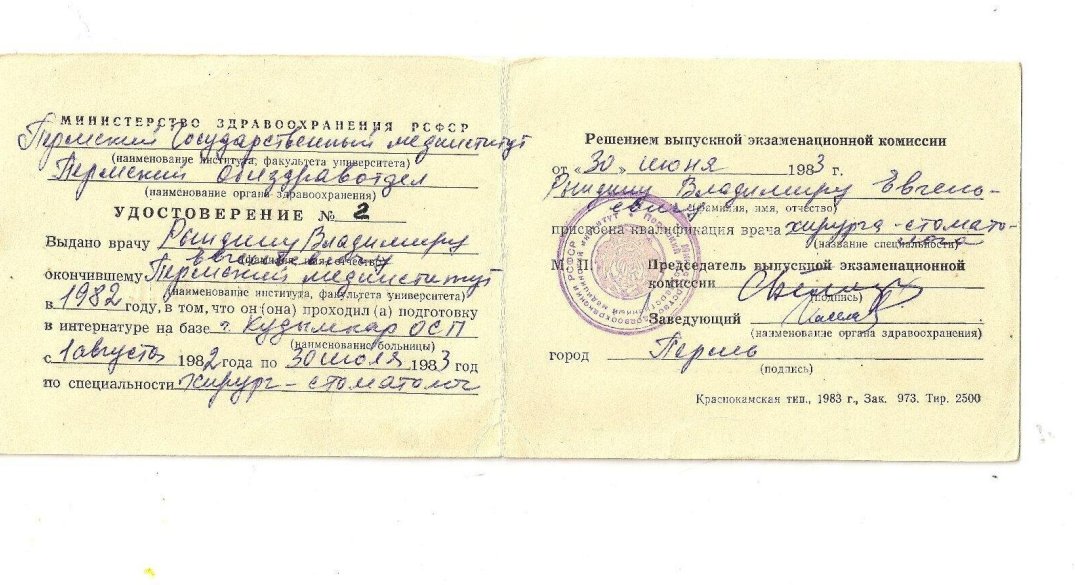 МИНИСТЕРСТВО ЗДРАВООХРАНЕНИЯ РСФСР
Пермский Государственный мединститут
(наименование института, факультета университета)
Пермский облздравотдел
(наименование органа здравоохранения)
УДОСТОВЕРЕНИЕ № 2
Выдано врачу Рындину Владимиру
Евгеньевичу
(фамилия, имя, отчество)
окончившему Пермский мединститут
(наименование института, факультета университета)
в 1982 году, в том, что он (она) проходил (а) подготовку
в интернатуре на базе г. Кудымкар ОСП
(наименование больницы)
с 1 августа 1982 года по 30 июля 1983 год
по специальности хирург-стоматолог
Решением выпускной экзаменационной комиссии
от «30» июня 1983 г.
Рындину Владимиру Евгень-
евичу
(фамилия, имя, отчество)
присвоена квалификация врача хирурга-стомато-
лога
(название специальности)
М. П.
Председатель выпускной экзаменационной
комиссии
(подпись)
Заведующий
(наименование органа здравоохранения)
город Пермь
(подпись)
Краснокамская тип., 1983 г., Зак. 973. Тир. 2500